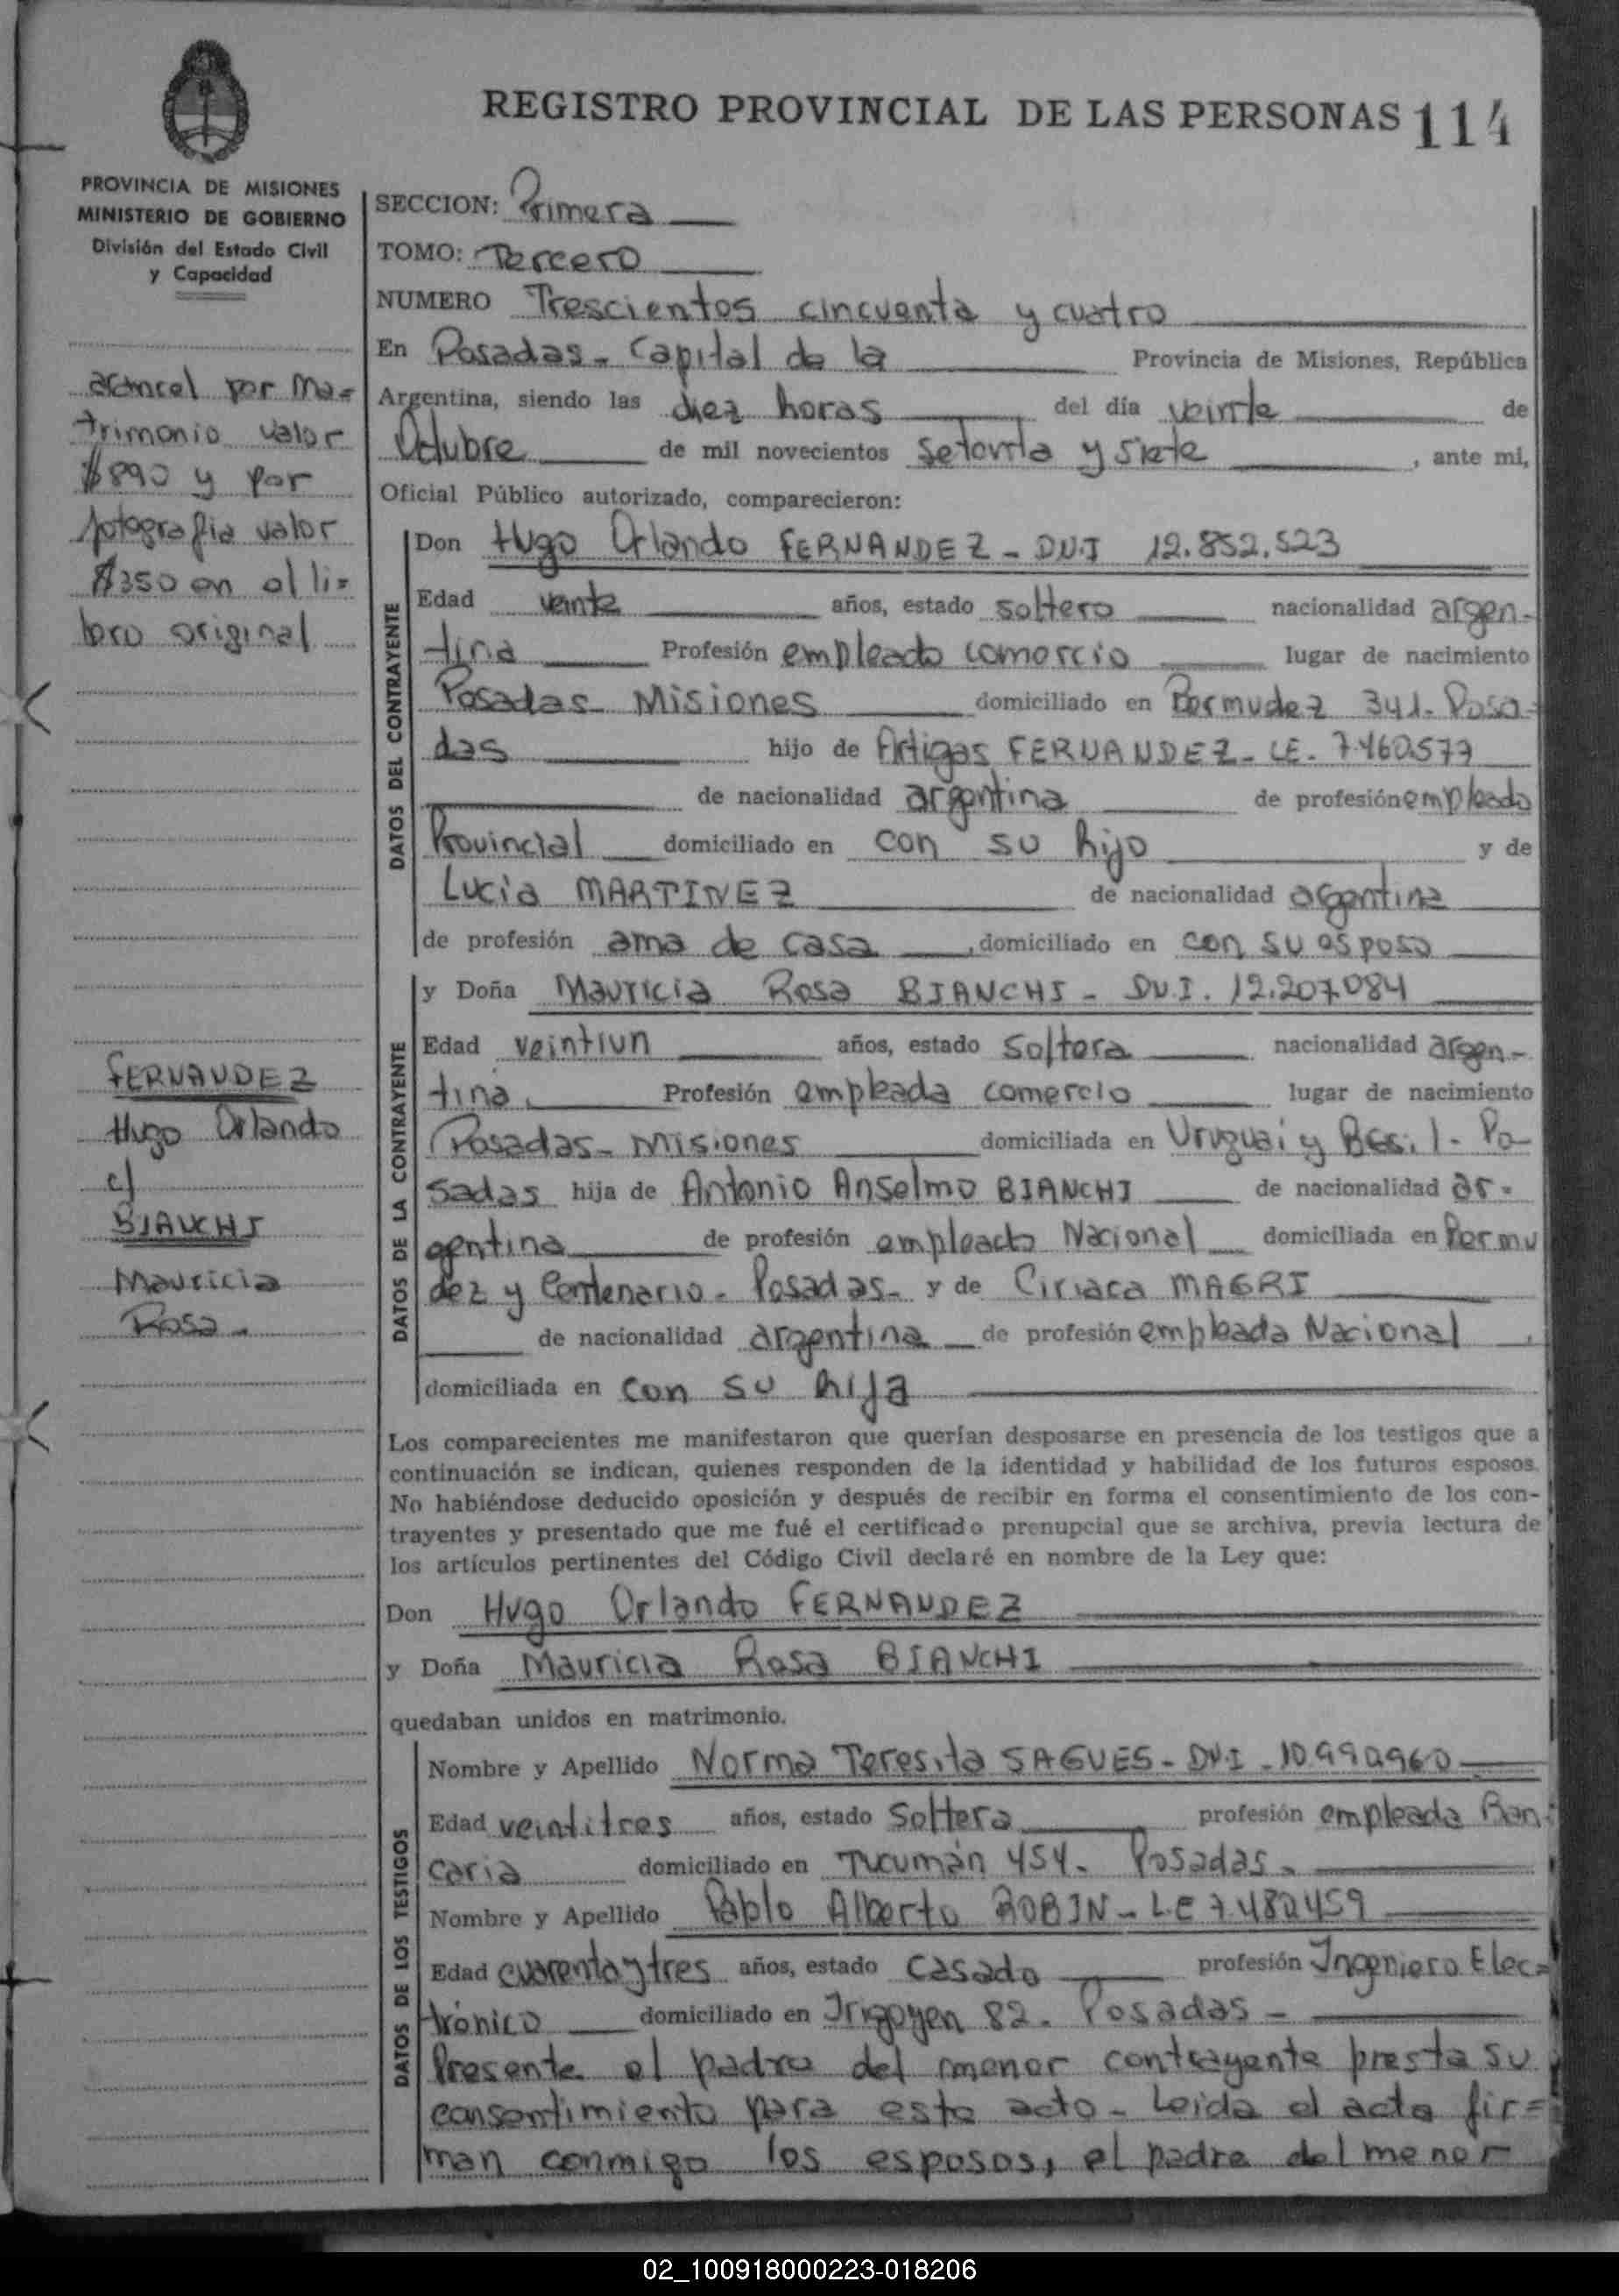 REGISTRO PROVINCIAL DE LAS PERSONAS 114
PROVINCIA DE MISIONES
MINISTERIO DE GOBIERNO
División del Estado Civil
y Capacidad
arancel por Ma=
trimonio valor
$890 y por
fotografia valor
$350 en el li=
bro original
FERNANDEZ
Hugo Orlando
c/
BIANCHI
Mauricia
Rosa.
SECCION: Primera
TOMO: Tercero
NUMERO Trescientos cincuenta y cuatro
En Posadas- Capital de la Provincia de Misiones, República
Argentina, siendo las diez horas del día veinte de
Octubre de mil novecientos setenta y siete, ante mi,
Oficial Público autorizado, comparecieron:
DATOS DEL CONTRAYENTE
Don Hugo Orlando FERNANDEZ - DNI 12.852.523
Edad veinte años, estado soltero nacionalidad argen-
tina Profesión empleado comercio lugar de nacimiento
Posadas Misiones domiciliado en Bermudez 341- Posa-
das hijo de Artigas FERNANDEZ- LE- 7.460.577
de nacionalidad argentina de profesión empleado
Provincial domiciliado en con su hijo y de
Lucia MARTINEZ de nacionalidad argentina
de profesión ama de casa, domiciliado en con su esposo
DATOS DE LA CONTRAYENTE
y Doña Mauricia Rosa BIANCHI - DN.I. 12.207.084
Edad veintiun años, estado soltera nacionalidad argen-
tina. Profesión empleada comercio lugar de nacimiento
Posadas- Misiones domiciliada en Uruguai y Bras.il- Po-
sadas hija de Antonio Anselmo BIANCHI de nacionalidad ar-
gentina de profesión empleado Nacional domiciliada en Bermu
dez y Centenario- Posadas- y de Ciriaca MAGRI
de nacionalidad argentina de profesión empleada Nacional,
domiciliada en con su hija
Los comparecientes me manifestaron que querían desposarse en presencia de los testigos que a
continuación se indican, quienes responden de la identidad y habilidad de los futuros esposos.
No habiéndose deducido oposición y después de recibir en forma el consentimiento de los con-
trayentes y presentado que me fué el certificado prenupcial que se archiva, previa lectura de
los artículos pertinentes del Código Civil declaré en nombre de la Ley que:
Don Hugo Orlando FERNANDEZ
y Doña Mauricia Rosa BIANCHI
quedaban unidos en matrimonio.
DATOS DE LOS TESTIGOS
Nombre y Apellido Norma Teresita SAGUES- DN.I -10.990.960
Edad veintitres años, estado Soltera profesión empleada Ban-
caria domiciliado en Tucumán 454- Posadas-
Nombre y Apellido Pablo Alberto ROBIN- L.E 7.480.459
Edad cuarenta y tres años, estado casado profesión Ingeniero Elec=
trónico domiciliado en Irigoyen 82- Posadas-
Presente el padre del menor contrayente presta su
consentimiento para este acto- Leida el acta fir=
man conmigo los esposos, el padre del menor
02_100918000223-018206